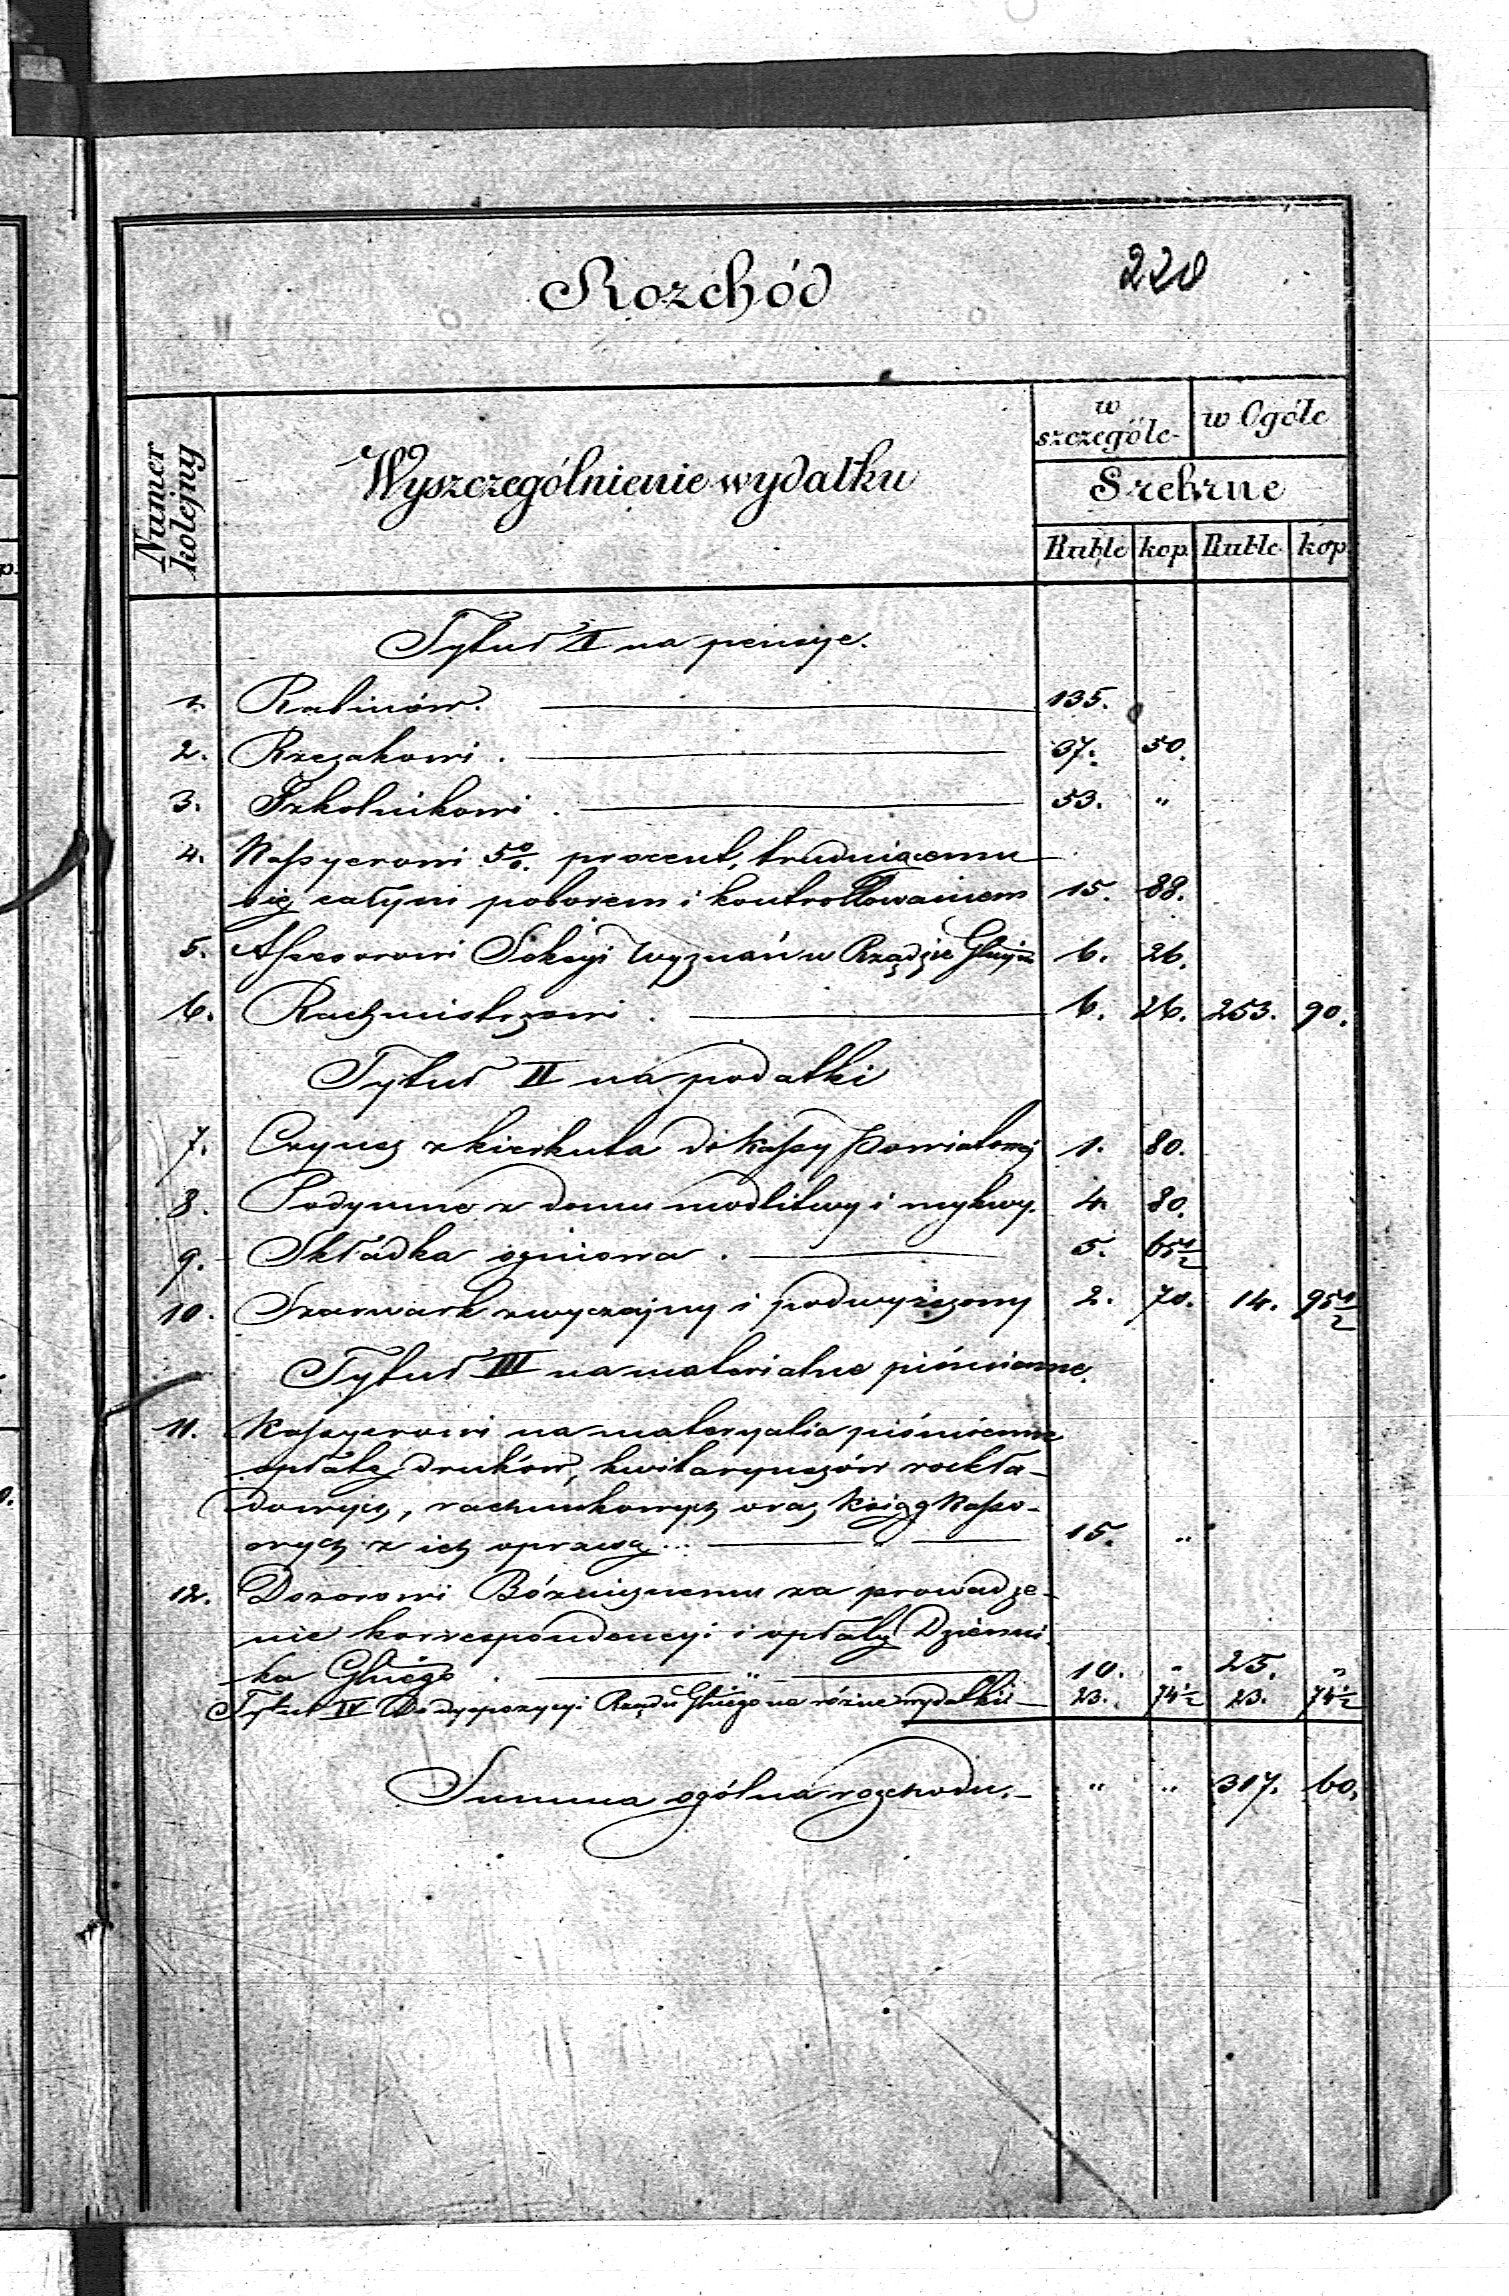 Rozchód 220
Numer kolejny
Wyszczególnienie wydatku
w szczególe
w Ogóle
Srebrne
Ruble kop. Ruble kop
Tytuł I na pensye.
1. Rabinów. 135.
2. Rzezakowi. 37. 50.
3. Szkolnikowi. 53. "
4. Kassyerowi 5% procent, trudniącemu
się całym poborem i kontrollowaniem 15. 88.
5. Assesorowi Sekcyi Wyznań w Rządzie Glnym 6. 26.
6. Rachmistrzowi. 6. 26. 253. 90.
Tytuł II na podatki
7. Czynsz z kierkuta do Kassy Powiatowej 1. 80.
8. Podymne z domu modlitwy i mykwy. 4. 80.
9. Składka ogniowa. 5. 65½
10. Szarwark zwyczajny i podwyższony 2. 70. 14. 95½
Tytuł III na materialne piśmienne.
11. Kassyerowi na materyalia piśmienne
opłatę druków, kwitaryuszów rozkła-
dowych, rachunkowych oraz Ksiąg Kasso-
wych z ich oprawą... 15. "
12. Dozorowi Bóżniczemu za prowadze-
nie korrespondencyi i opłaty Dzienni-
ka Glnego. 10. " 25. "
Tytuł IV Do dyspozycyi Rządu Glnego na różne wydatki 23. 74½ 23. 74½
Summa ogólna rozchodu. " " 317. 60.